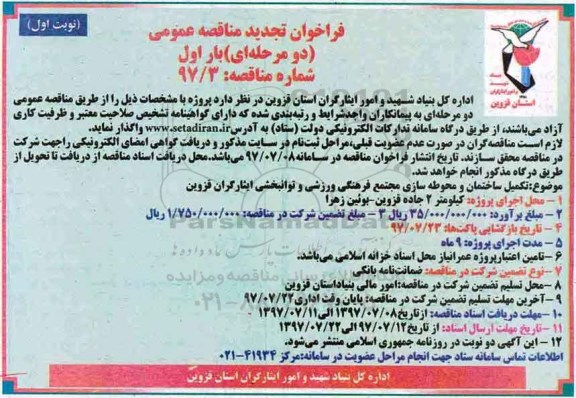 (نوبت اول)
فراخوان تجدید مناقصه عمومی
(دو مرحله‌ای)بار اول
شماره مناقصه: ۹۷/۳
بنیاد شهید و امور ایثارگران
استان قزوین
اداره کل بنیاد شهید و امور ایثارگران استان قزوین در نظر دارد پروژه با مشخصات ذیل را از طریق مناقصه عمومی
دو مرحله‌ای به پیمانکاران واجدشرایط و رتبه‌بندی شده که دارای گواهینامه تشخیص صلاحیت معتبر و ظرفیت کاری
آزاد می‌باشند، از طریق درگاه سامانه تدارکات الکترونیکی دولت (ستاد) به آدرس www.setadiran.ir واگذار نماید.
لازم است مناقصه‌گران در صورت عدم عضویت قبلی،مراحل ثبت‌نام در سایت مذکور و دریافت گواهی امضای الکترونیکی راجهت شرکت
در مناقصه محقق سازند. تاریخ انتشار فراخوان مناقصه در سامانه ۹۷/۰۷/۰۸ می‌باشد.محل دریافت اسناد مناقصه از دریافت تا تحویل از
طریق درگاه مذکور انجام خواهد شد.
موضوع:تکمیل ساختمان و محوطه سازی مجتمع فرهنگی ورزشی و توانبخشی ایثارگران قزوین
۱- محل اجرای پروژه: کیلومتر ۲ جاده قزوین-بوئین زهرا
۲- مبلغ برآورد: ۳۵/۰۰۰/۰۰۰/۰۰۰ ریال ۳- مبلغ تضمین شرکت در مناقصه: ۱/۷۵۰/۰۰۰/۰۰۰ ریال
۴- تاریخ بازگشایی پاکت‌ها: ۹۷/۰۷/۲۳
۵- مدت اجرای پروژه: ۹ ماه
۶-تامین اعتبارپروژه عمرانیاز محل اسناد خزانه اسلامی می‌باشد.
۷- نوع تضمین شرکت در مناقصه: ضمانت‌نامه بانکی
۸-محل تسلیم تضمین شرکت در مناقصه:امور مالی بنیاداستان قزوین
۹-آخرین مهلت تسلیم تضمین شرکت در مناقصه: پایان وقت اداری ۹۷/۰۷/۲۲
۱۰-مهلت دریافت اسناد مناقصه: ازتاریخ ۱۳۹۷/۰۷/۰۸ الی ۱۳۹۷/۰۷/۱۱
۱۱- تاریخ مهلت ارسال اسناد: از تاریخ ۹۷/۰۷/۱۲ الی ۱۳۹۷/۰۷/۲۲
۱۲- این آگهی دو نوبت در روزنامه جمهوری اسلامی منتشر می‌شود.
اطلاعات تماس سامانه ستاد جهت انجام مراحل عضویت در سامانه:مرکز ۴۱۹۳۴-۰۲۱
اداره کل بنیاد شهید و امور ایثارگران استان قزوین